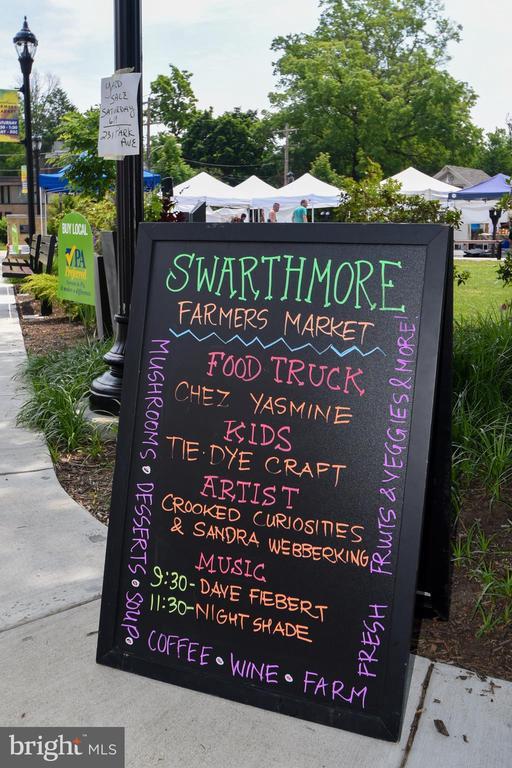 YARD
SALE
SATURDAY
231 PARK
AVE
BUY LOCAL
PA
Preferred
SWARTHMORE
FARMERS MARKET
FOOD TRUCK
CHEZ YASMINE
KIDS
TIE-DYE CRAFT
ARTIST
CROOKED CURIOSITIES
& SANDRA WEBBERKING
MUSIC
9:30-DAVE FIEBERT
11:30-NIGHT SHADE
MUSHROOMS • DESSERTS • SOUP •
COFFEE • WINE • FARM
FRESH FRUITS & VEGGIES & MORE!
bright MLS